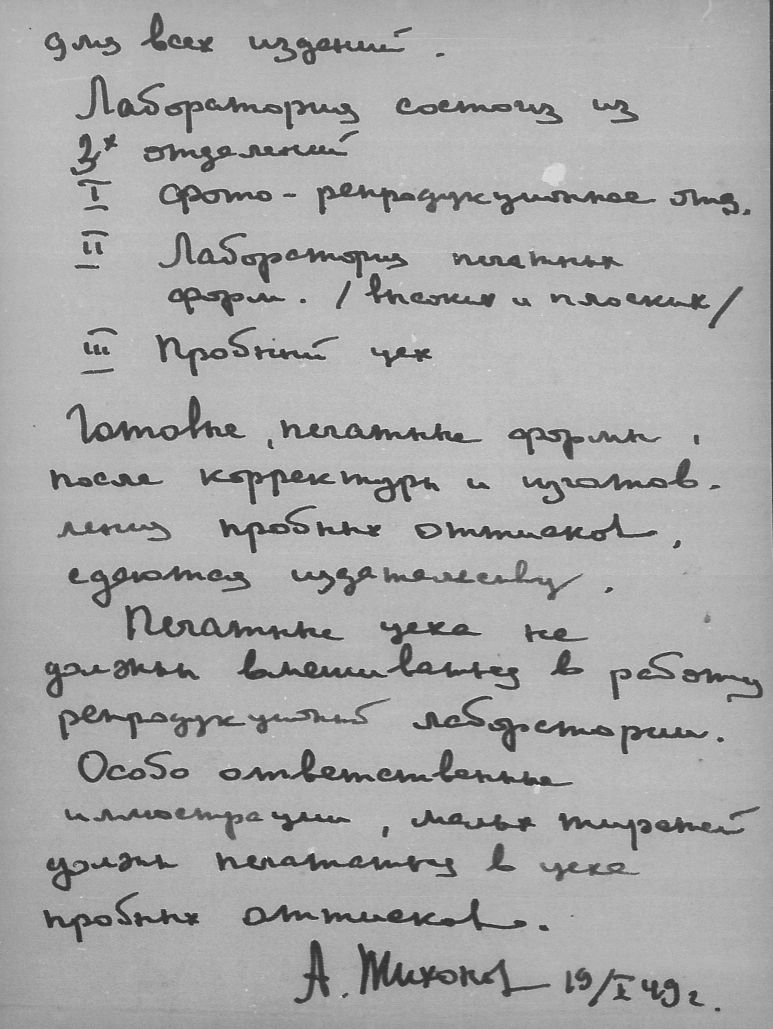 для всех изданий.
Лаборатория состоит из
3х отделений
I фото-репродукционное отд.
II Лаборатория печатных
форм. /высоких и плоских/
III Пробный цех
Готовые, печатные формы,
после корректуры и изготов-
ления пробных оттисков,
сдаются издательству.
Печатные цеха не
должны вмешиваться в работу
репродукционной лаборатории.
Особо ответственные
иллюстрации, малых тиражей
должны печататься в цеха
пробных оттисков.
А. Тихонов 19/X 49 г.